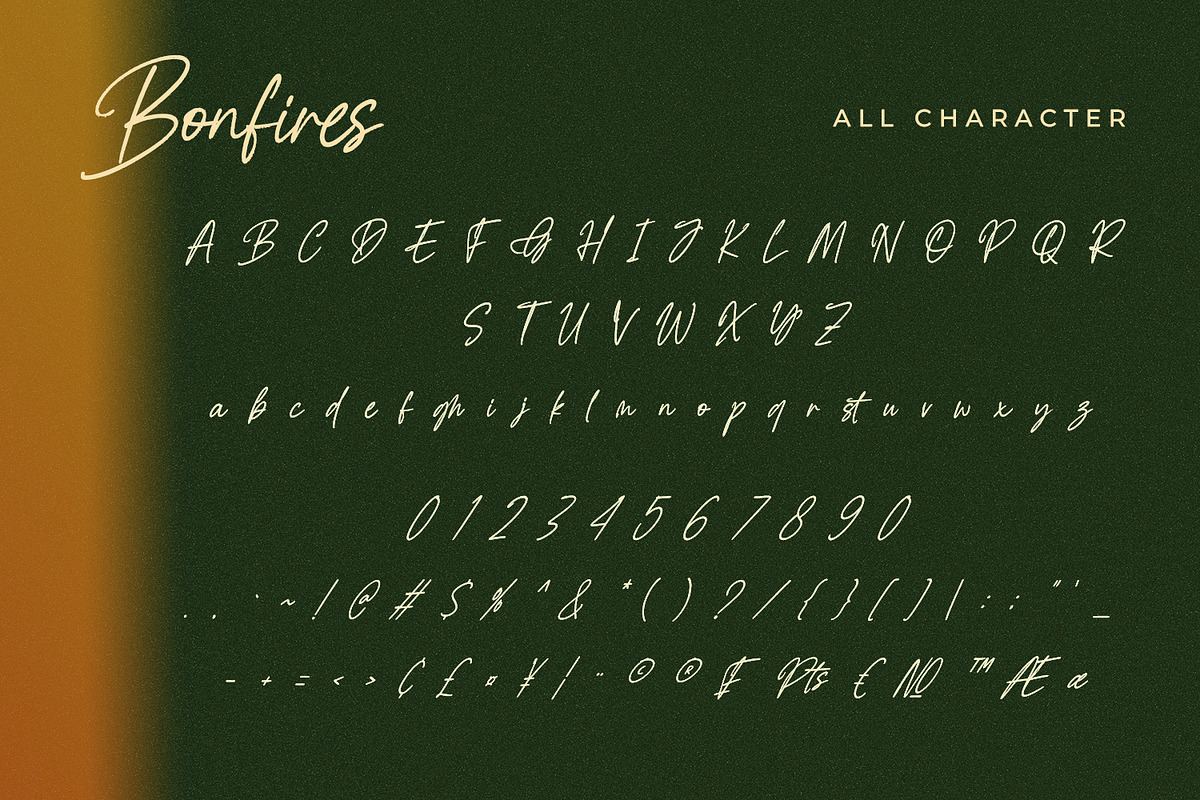 Bonfires
ALL CHARACTER
A B C D E F G H I J K L M N O P Q R
S T U V W X Y Z
a b c d e f gh i j k l m n o p q r st u v w x y z
0 1 2 3 4 5 6 7 8 9 0
. . ` ~ ! @ # $ % ^ & * ( ) ? / { } [ ] | : : " ' _
- + = < > ¢ £ ¤ ¥ | ¨ © ® ₣ ₧ € № ™ Æ æ